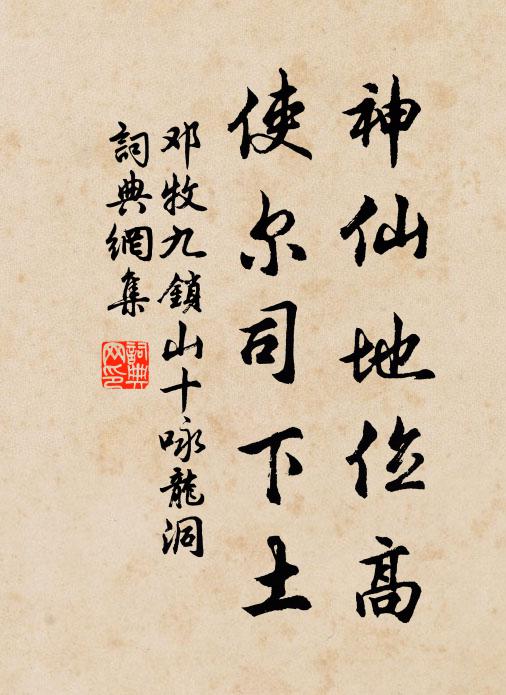 神仙地位高
使尔司下土
邓牧九鎖山十咏龍洞
詞典網集
詞典網印